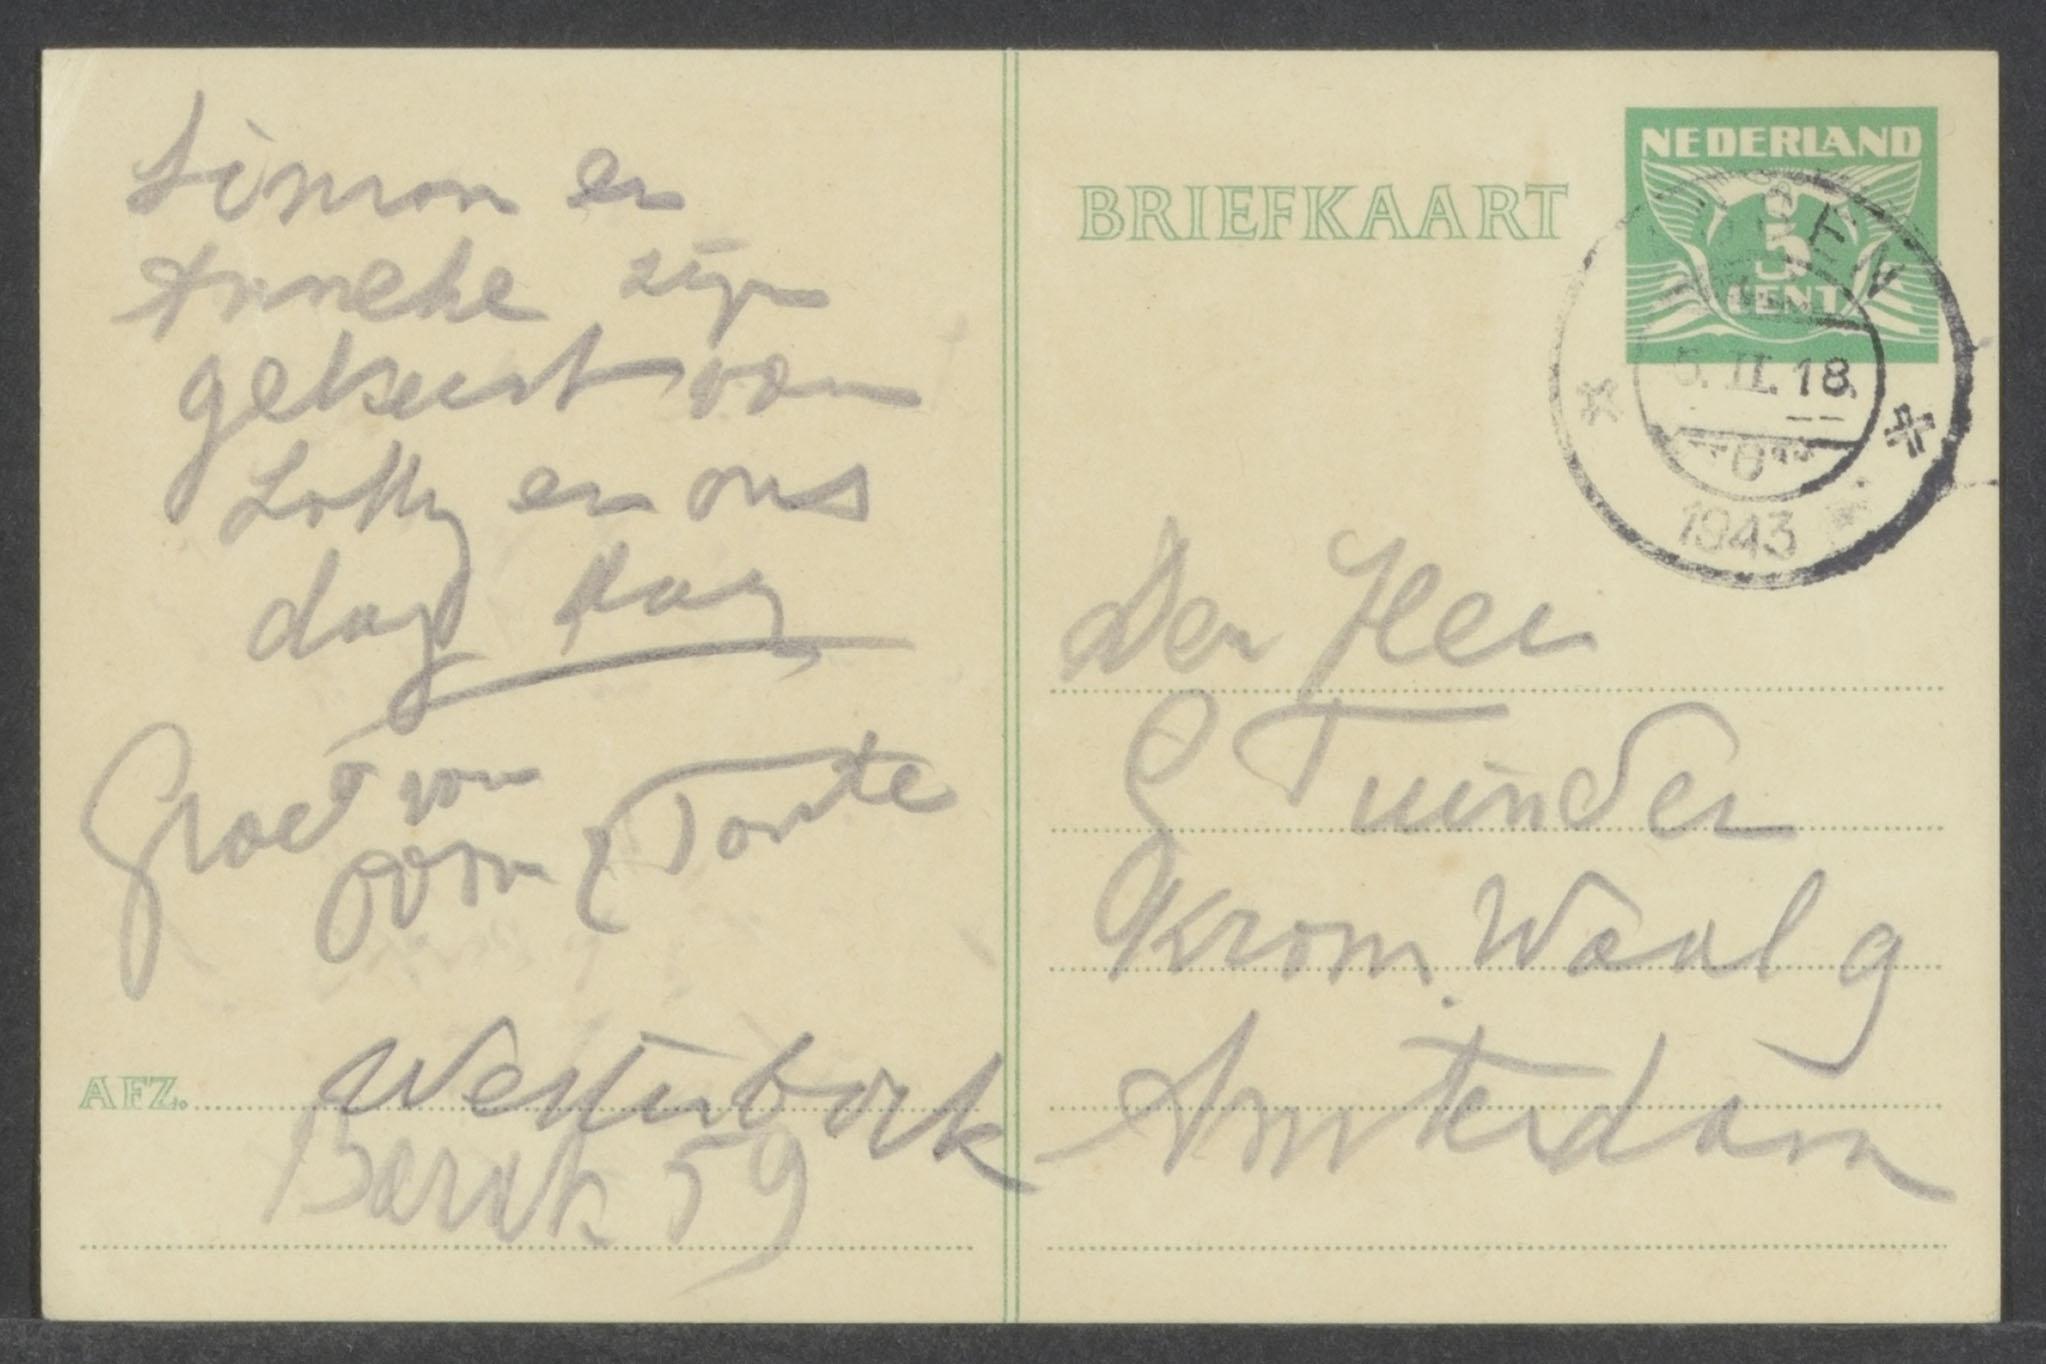 Simon en
Anneke zijn
gekust van
Lotty en ons
dag dag
Groet van
Oom & Tante
AFZ. Westerbork
Barak 59
BRIEFKAART
NEDERLAND
5
CENT
5.II.18.
1943
Den Heer
G Tuinder
Krom. Waal 9
Amsterdam